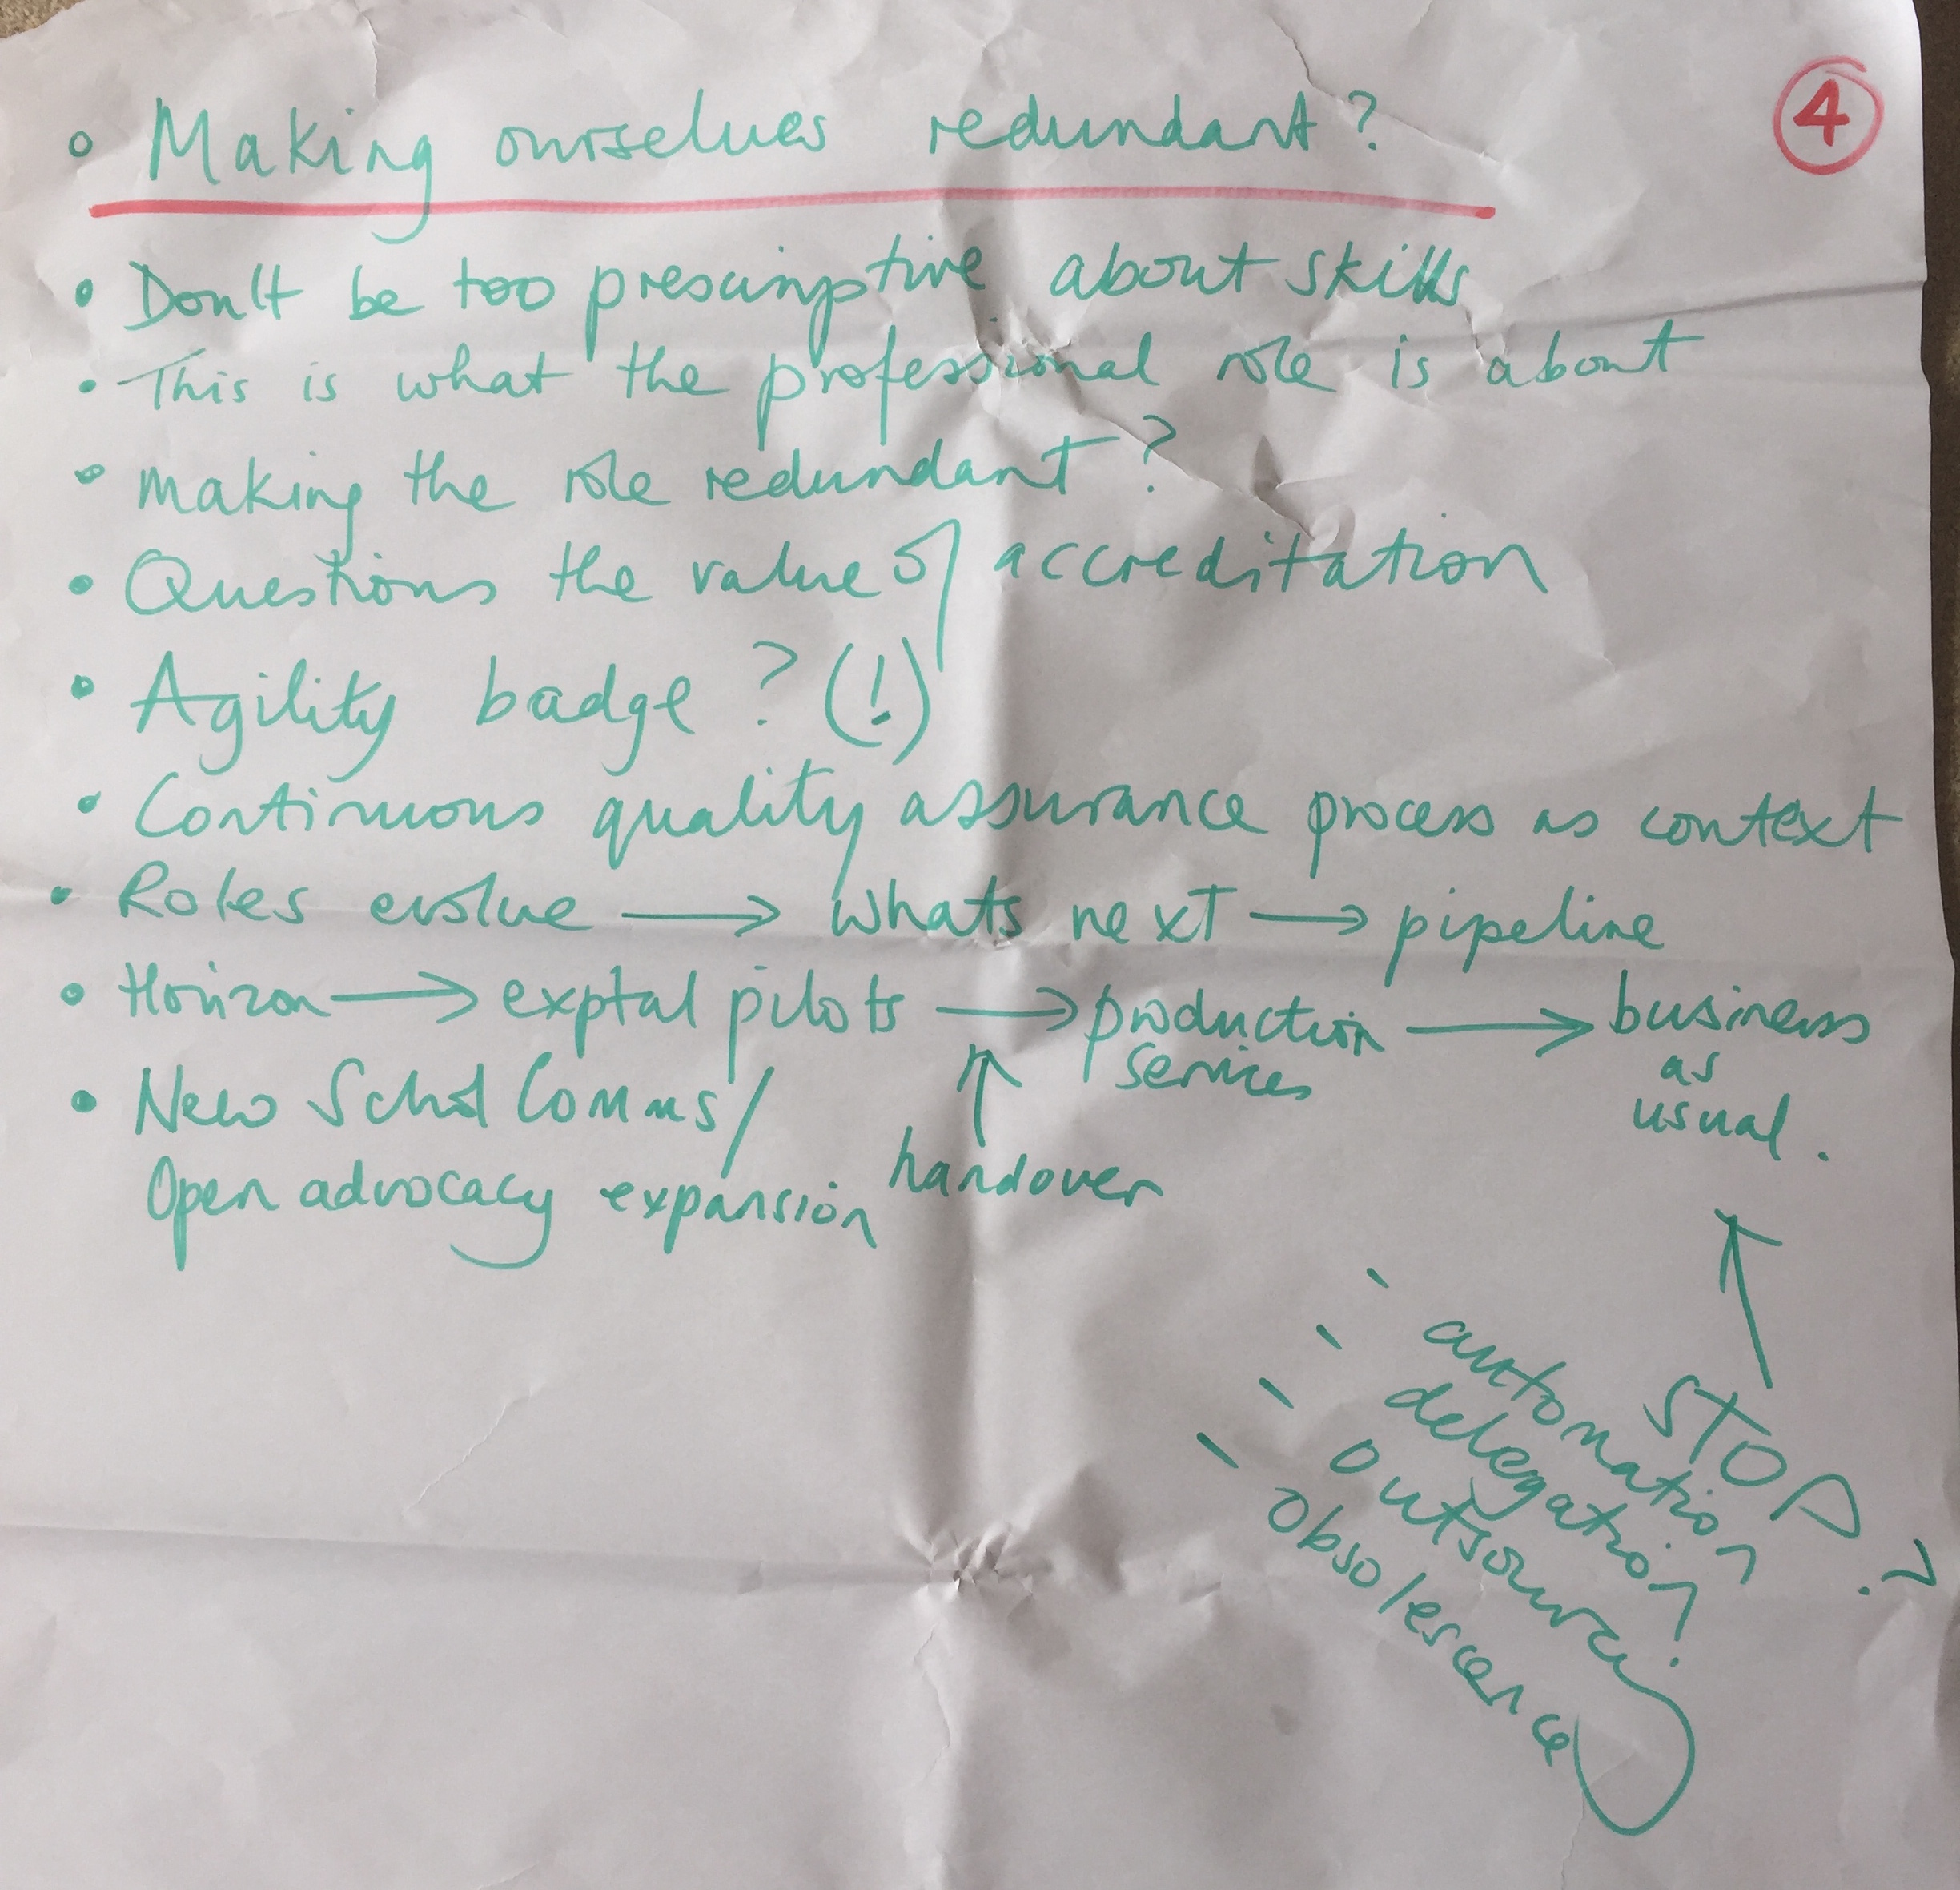 ④
• Making ourselves redundant?
• Don't be too prescriptive about skills
• This is what the professional role is about
• making the role redundant?
• Questions the value of accreditation
• Agility badge? (!)
• Continuous quality assurance process as context
• Roles evolve → whats next → pipeline
• Horizon → exptal pilots → production services → business as usual.
• New Schol Comms/
Open advocacy expansion
↑ handover
↑ STOP?
- automation
- delegation
- outsourcing
- obsolescence